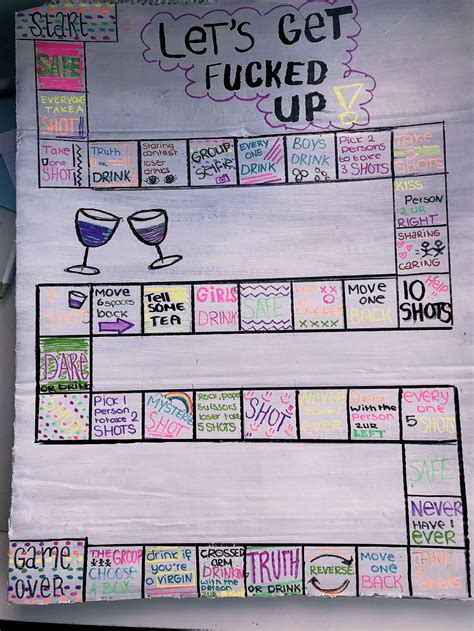 Start
LET'S GET
FUCKED
UP!
SAFE
EVERYONE
TAKE A
SHOT!
Take
one
SHOT
Truth
or
DRINK
Staring
contest
loser
drinks
GROUP
SELFIE
EVERY
ONE
DRINK
BOYS
DRINK
Pick 2
persons
to take
3 SHOTS
TAKE
SHOTS
KISS
Person
2 UR
RIGHT
SHARING
CARING
10
SHOTS
Help
MOVE
ONE
BACK
SAFE
GIRLS
DRINK
Tell
SOME
TEA
MOVE
6 spaces
back
DARE
OR DRINK
SHOT
Pick 1
Person
to take 2
SHOTS
MYSTERIE
SHOT
Rock, Paper
Suissors
loser takes
5 SHOTS
SHOT
Never
have I
ever
Drink
With the
Person
2UR
LEFT
every
one
5
SHOTS
SAFE
Never
HAVE I
ever
TAKE
MOVE
ONE
BACK
REVERSE
TRUTH
OR DRINK
CROSSED
ARM
DRINKING
with the
drink if
you're
a VIRGIN
THE GROUP
CHOOSE
A
Game
over